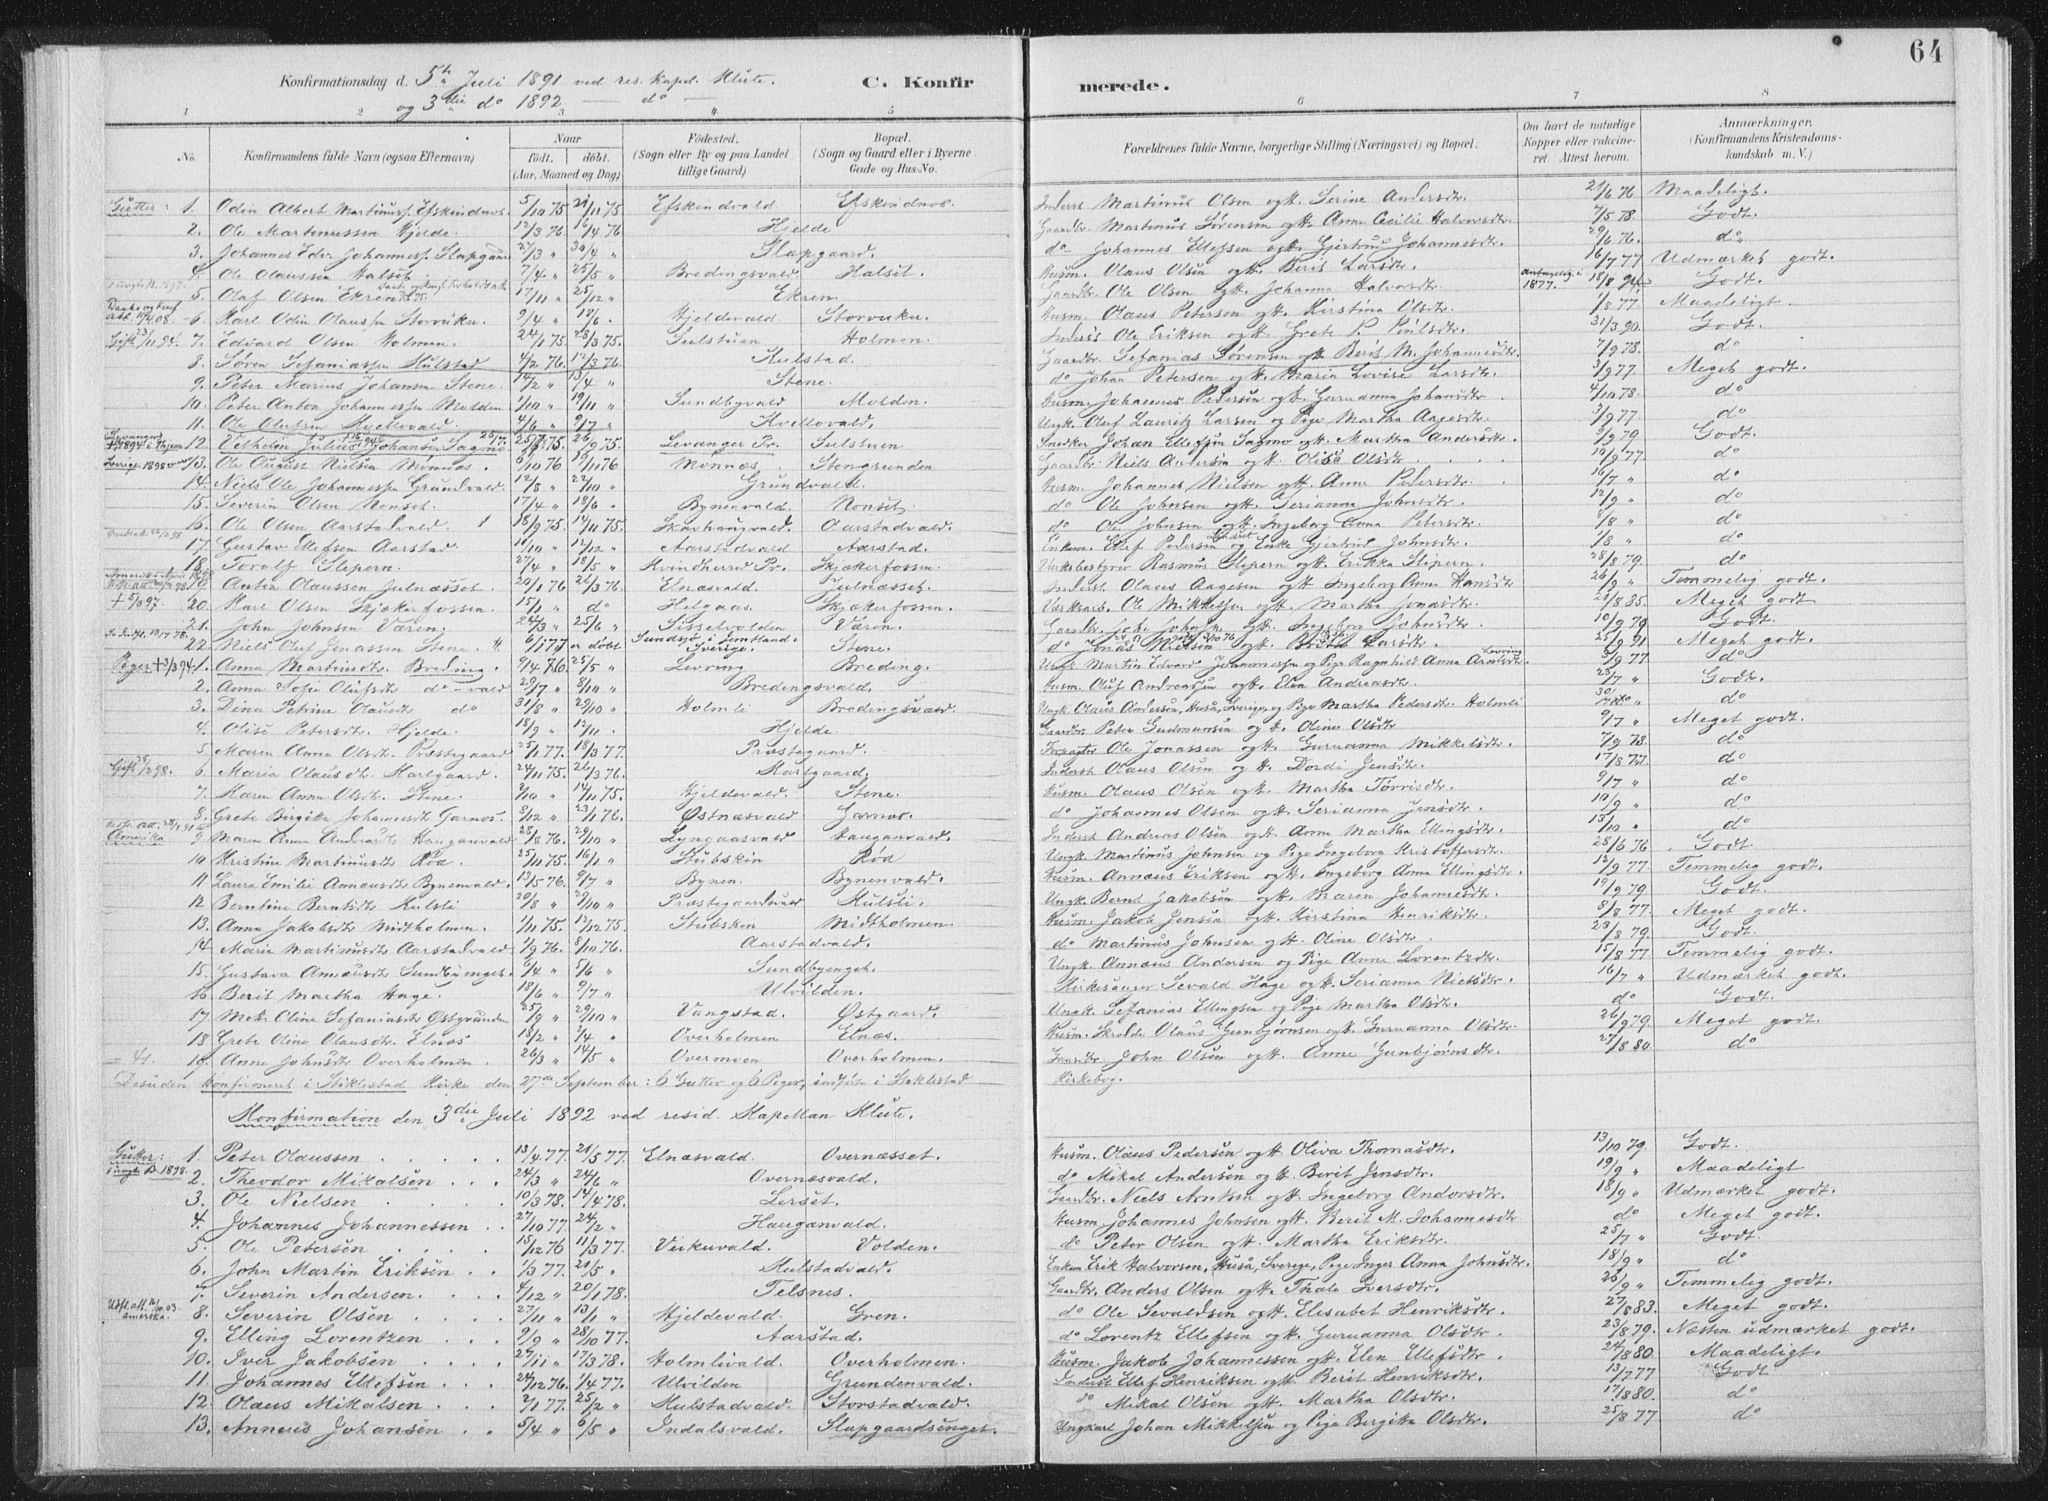 64
Konfirmationsdag d. 5te Juli 1891 ved res. kapel. Klüte. C. Konfirmerede.
og 3die do 1892 — do —
1 2 3 4 5 6 7 8
No. Konfirmandens fulde Navn (ogsaa Efternavn) Naar født. døbt. (Aar, Maaned og Dag) Fødested. (Sogn eller By og paa Landet tillige Gaard) Bopæl. (Sogn og Gaard eller i Byerne Gade og Hus-No. Forældrenes fulde Navne, borgerlige Stilling (Næringsvei) og Bopæl. Om havt de naturlige Kopper eller vakcineret. Attest herom. Anmærkninger. (Konfirmandens Kristendomskundskab m. V.)
Gutter: 1. Odin Albert Martinuss. Efskindmos 5/10 75 21/11 75 Efskindvald Efskindmos. Inderst Martinus Olsen og H. Serine Andersdtr. 21/6 76 Maadeligt.
2. Ole Martinussen Hjelde. 12/3 76 16/4 76 Hjelde Gaardbr. Martinus Sørensen og H. Anne Cecilie Halvorsdtr. 7/5 78. Godt.
3. Johannes Edv. Johanness. Slapgaard 27/3 „ 30/4 „ Slapgaard. do Johannes Ellefsen og H. Gjertrud Johannesdtr. 29/6 76. do
4. Ole Olaussen Halset. 7/4 „ 25/5 „ Bredingsvald. Halset. Husm. Olaus Olsen og H. Berit Larsdtr. 16/7 77 Udmærket godt.
5. Olaf Olsen Ekren 17/11 „ 25/12 „ Ekren. Gaardbr. Ole Olsen og H. Johanna Halvorsdtr. antagelig i 1877. 18/8 94 Godt.
6. Karl Odin Olaussen Storvuku. 9/4 „ 18/6 „ Hjeldevald Storvuku. Husm. Olaus Petersen og H. Kirstina Olsdtr. 1/8 77. Maadeligt.
Gift 23/11 94. 7. Edvard Olsen Holmen. 24/1 75 28/3 75. Sulstuen Holmen. Inderst Ole Eriksen og H. Grete P. Poulsdtr. 31/3 90. Godt.
8. Søren Sefaniassen Kulstad 4/2 76 12/3 76. Kulstad. Gaardbr. Sefanias Sørensen og H. Berit M. Johannesdtr. 7/9 78. do
9. Peter Marius Johansen Stene. 14/2 „ 13/4 „ Stene. do Johan Petersen og H. Maria Lovise Larsdtr. 3/9 77. Meget godt.
10. Peter Anton Johannessen Molden 1/10 „ 19/11 „ Sundbyvald Molden. Husm. Johannes Pedersen og H. Guruanna Johansdtr. 4/10 78. do
11. Ole Olufsen Kvellovald. 4/6 „ 9/7 „ Kvellovald. Ungk. Oluf Lauritz Larsen og Pige Martha Aagesdtr. 3/9 77. do
12. Vilhelm Julius Johansen Sagmo 26/9 75. Levanger Pr. Sulstuen Snedker Johan Ellefsen Sagmo og H. Martha Andersdtr. 5/9 79 Godt.
13. Ole August Nielsen Monnæs. 6/10 76 19/11 76 Monnæs Stengrunden Gaardbr. Niels Andersen og H. Olise Olsdtr. 10/9 77 do
14. Niels Ole Johannessen Grundvald. 12/8 „ 22/10 „ Grundvald. Husm. Johannes Nielsen og H. Anne Petersdtr. 16/7 „ do
15. Severin Olsen Nonset. 17/4 „ 18/6 „ Bynenvald. Nonset. do Ole Johnsen og H. Serianna Johnsdtr. 12/9 „ do
16. Ole Olsen Aarstadvald. 18/9 75. 14/11 75. Skavhaugvald. Aarstadvald. do Ole Johnsen og H. Ingeborg Anna Petersdtr. 8/8 „ do
17. Gustav Ellefsen Aarstad. 10/10 „ 12/12 „ Aarstadvald Aarstad. Enkem. Ellef Pedersen og Enke Gjertrud Johnsdtr. 1/8 „ do
18. Toralf Stipern. 27/4 „ 18/5 „ Kvindherred Pr. Skjækerfossen. Verksbestyrer Rasmus Stipern og H. Erikka Stipern. 28/8 79. do
19. Anton Olaussen Julnæsset. 20/1 76 26/3 76. Elnæsvald. Julnæsset. Inderst Olaus Aagesen og H. Ingeborg Anna Hansdtr. 26/9 „ Temmelig godt.
+ 5/3 97 20. Karl Olsen Skjækerfossen. 15/1 „ do Helgaas. Skjækerfossen. Verksarb. Ole Mikkelsen og H. Martha Jonasdtr. 26/8 85. Meget godt
21. John Johnsen Væren. 24/3 „ 25/6 „ Sisselvolden Væren. Gaardbr. Joh. Johnsen og H. Ingebor Johnsdtr. 10/9 79 Godt.
22. Niels Oluf Jonassen Stene. 6/1 77 er døbt Sundsjø i Jemtland i Sverige. Stene. do Jonas Nielsen og H. Brita Larsdtr. 25/9 91 Meget godt.
Piger + 3/3 94. 1. Anna Martinsdtr. Breding. 9/4 76. 25/5 „ Levring Breding. Ungk. Martin Edvard Johannessen og Pige Ragnhild Anna Arntsdtr. Levring 3/9 77 do
2. Anna Sofie Olufsdtr. do – vald 29/7 „ 8/10 „ Bredingsvald. Husm. Oluf Andreassen og H. Elen Andreasdtr. 23/7 „ Godt.
3. Dina Petrine Olausdtr do 31/8 „ 29/10 „ Holmli Bredingsvald. Ungk. Olaus Andersen, Huså, Sverige, og Pige Martha Pedersdtr. Holmli do
4. Olise Petersdtr. Hjelde. 18/9 „ 12/11 „ Hjelde. Gaardbr. Peter Gudmunsen og H. Oline Olsdtr. 9/7 „ Meget godt.
5. Maren Anna Olsdtr. Præstegaard 25/1 77. 18/3 77. Præstegaard. Forpagter Ole Jonassen og H. Guruanna Mikkelsdtr. 7/9 78. do
6. Maria Olausdtr. Karlgaard. 24/11 75. 26/3 76. Karlgaard. Inderst Olaus Olsen og H. Dordi Jensdtr. 17/8 77. do
7. Karen Anna Olsdtr. Stene. 2/10 „ 14/11 75. Hjeldevald. Stene. Husm. Olaus Olsen og H. Martha Torrisdtr. 9/7 „ do
8. Grete Birgitte Johannesdtr Garnæs. 8/12 „ 23/1 76. Østnæsvald Garnæs. do Johannes Olsen og H. Serianna Jensdtr. 10/9 „ do
Amerika 9. Maren Anna Andreasdtr Hauganvald 28/8 76. 29/10 „ Lyngaasvald Hauganvald. Inderst Andreas Olsen og H. Anna Martha Ellingsdtr. 13/10 „ do
10. Kristine Martinusdtr. Rød 25/10 75 16/1 „ Stubskin Rød Ungk. Martinus Johnsen og Pige Ingeborg Kristoffersdtr. 28/6 76 Godt
11. Laura Emilie Annæusdtr Bynenvald. 13/5 76. 9/7 „ Bynen. Bynenvald. Husm. Annæus Eriksen og H. Ingeborg Anna Ellingsdtr. 12/9 77. Temmelig godt.
12. Berntine Berntsdtr Kulsli 20/8 „ 29/10 „ Præstegaardsvald Kulsli. Ungk. Bernt Jakobsen og Maren Johannesdtr. 19/9 79. Godt.
13. Anna Jakobsdtr. Midtholmen. 1/11 75. 12/12 75. Stubsken Midtholmen. Husm. Jakob Jensen og H. Kirstina Henriksdtr. 8/8 77. Meget godt.
14. Marie Martinusdtr. Aarstadvald 1/9 76. 8/10 76. Aarstadvald. do Martinus Johnsen og H. Oline Olsdtr. 23/8 79. Godt.
15. Gustava Annæusdtr. Sundbyenget. 6/4 „ 5/6 „ Sundbyenget. Ungk. Annæus Andersen og Pige Anne Lorentzdtr. 15/8 77 Temmelig godt.
16. Berit Martha Hage. 18/6 „ 9/7 „ Ulvilden. Kirkesanger Sevald Hage og H. Serianna Nielsdtr. 16/7 „ Udmærket godt.
17. Mek. Oline Sefaniasdtr. Østgrunden 25/9 „ 29/10 „ Vangstad. Østgaard. Ungk. Sefanias Ellingsen og Pige Martha Olsdtr. do Godt.
18. Grete Oline Olausdtr. Elnæs. 18/2 „ 2/4 „ Overholmen Elnæs. Husm. Skredder Olaus Gunbjørnsen og H. Guruanna Olsdtr. 26/9 79. Meget godt.
19. Anne Johnsdtr Overholmen. 26/3 „ 14/5 „ Overmoen Overholmen. Gaardbr. John Olsen og H. Anne Gunbjørnsdtr. 27/8 80. do
Desuden konfirmeret i Stiklestad Kirke den 27de September: 6 Gutter og 6 Piger, indført i Stiklestad Kirkebog.
Konfirmation den 3die Juli 1892 ved resid. Kapellan Klüte.
Gutter: 1. Peter Olaussen 13/4 77. 21/5 77. Elnæsvald. Overnæsset. Husm. Olaus Pedersen og H. Oliva Thomasdtr. 13/10 79. Godt.
2. Theodor Mikalsen 24/3 „ 24/6 „ Overnæsvald. do Mikal Andersen og H. Berit Jensdtr. 19/9 „ Maadeligt
3. Ole Nielsen 10/3 78. 14/4 78. Lerset. Gaardbr. Niels Arntsen og H. Ingeborg Andorsdtr. 18/9 „ Udmærket godt.
4. Johannes Johannessen 27/10 77. 24/2 „ Hauganvald. Husm. Johannes Johnsen og H. Berit M. Johannesdtr do Meget godt.
5. Ole Petersen 15/12 76 11/3 77. Virkuvald. Volden. do Peter Olsen og H. Martha Eriksdtr. 25/7 „ Godt.
6. John Martin Eriksen 1/3 77. 21/5 „ Kulstadvald. Enkem. Erik Halvorsen, Huså, Sverige, Pige Inger Anna Johnsdtr. 18/9 „ do
7. Severin Andersen. 4/12 „ 20/1 78. Telsnes. Gaardbr. Anders Olsen og H. Thale Iversdtr. 26/9 „ Temmelig godt.
Amerika. 8. Severin Olsen 27/11 „ 13/1 „ Hjeldevald. Gren. do Ole Sevaldsen og H. Elisabet Henriksdtr. 27/8 83. Meget godt.
9. Elling Lorentzen 9/9 „ 28/10 77. Aarstad. do Lorentz Ellefsen og H. Guruanna Olsdtr. 23/8 79. Næsten udmærket godt.
10. Iver Jakobsen 27/11 „ 17/3 78. Holmlivald. Overholmen. Husm. Jakob Johannessen og H. Elen Ellefsdtr. 24/8 80. Maadeligt.
11. Johannes Ellefsen 24/12 76. 1/4 77. Ulvilden Grundenvald. Inderst Ellef Henriksen og H. Berit Henriksdtr. 13/7 77 Godt
12. Olaus Mikalsen 2/1 77. 25/2 „ Kulstadvald. Storstadvald. do Mikal Olsen og H. Martha Olsdtr. 17/8 80. do
13. Annæus Johansen 5/4 „ 6/5 „ Indalsvald. Slapgaardsenget. Ungkarl Johan Mikkelsen og Pige Bergitta Olsdtr. 25/8 77 do